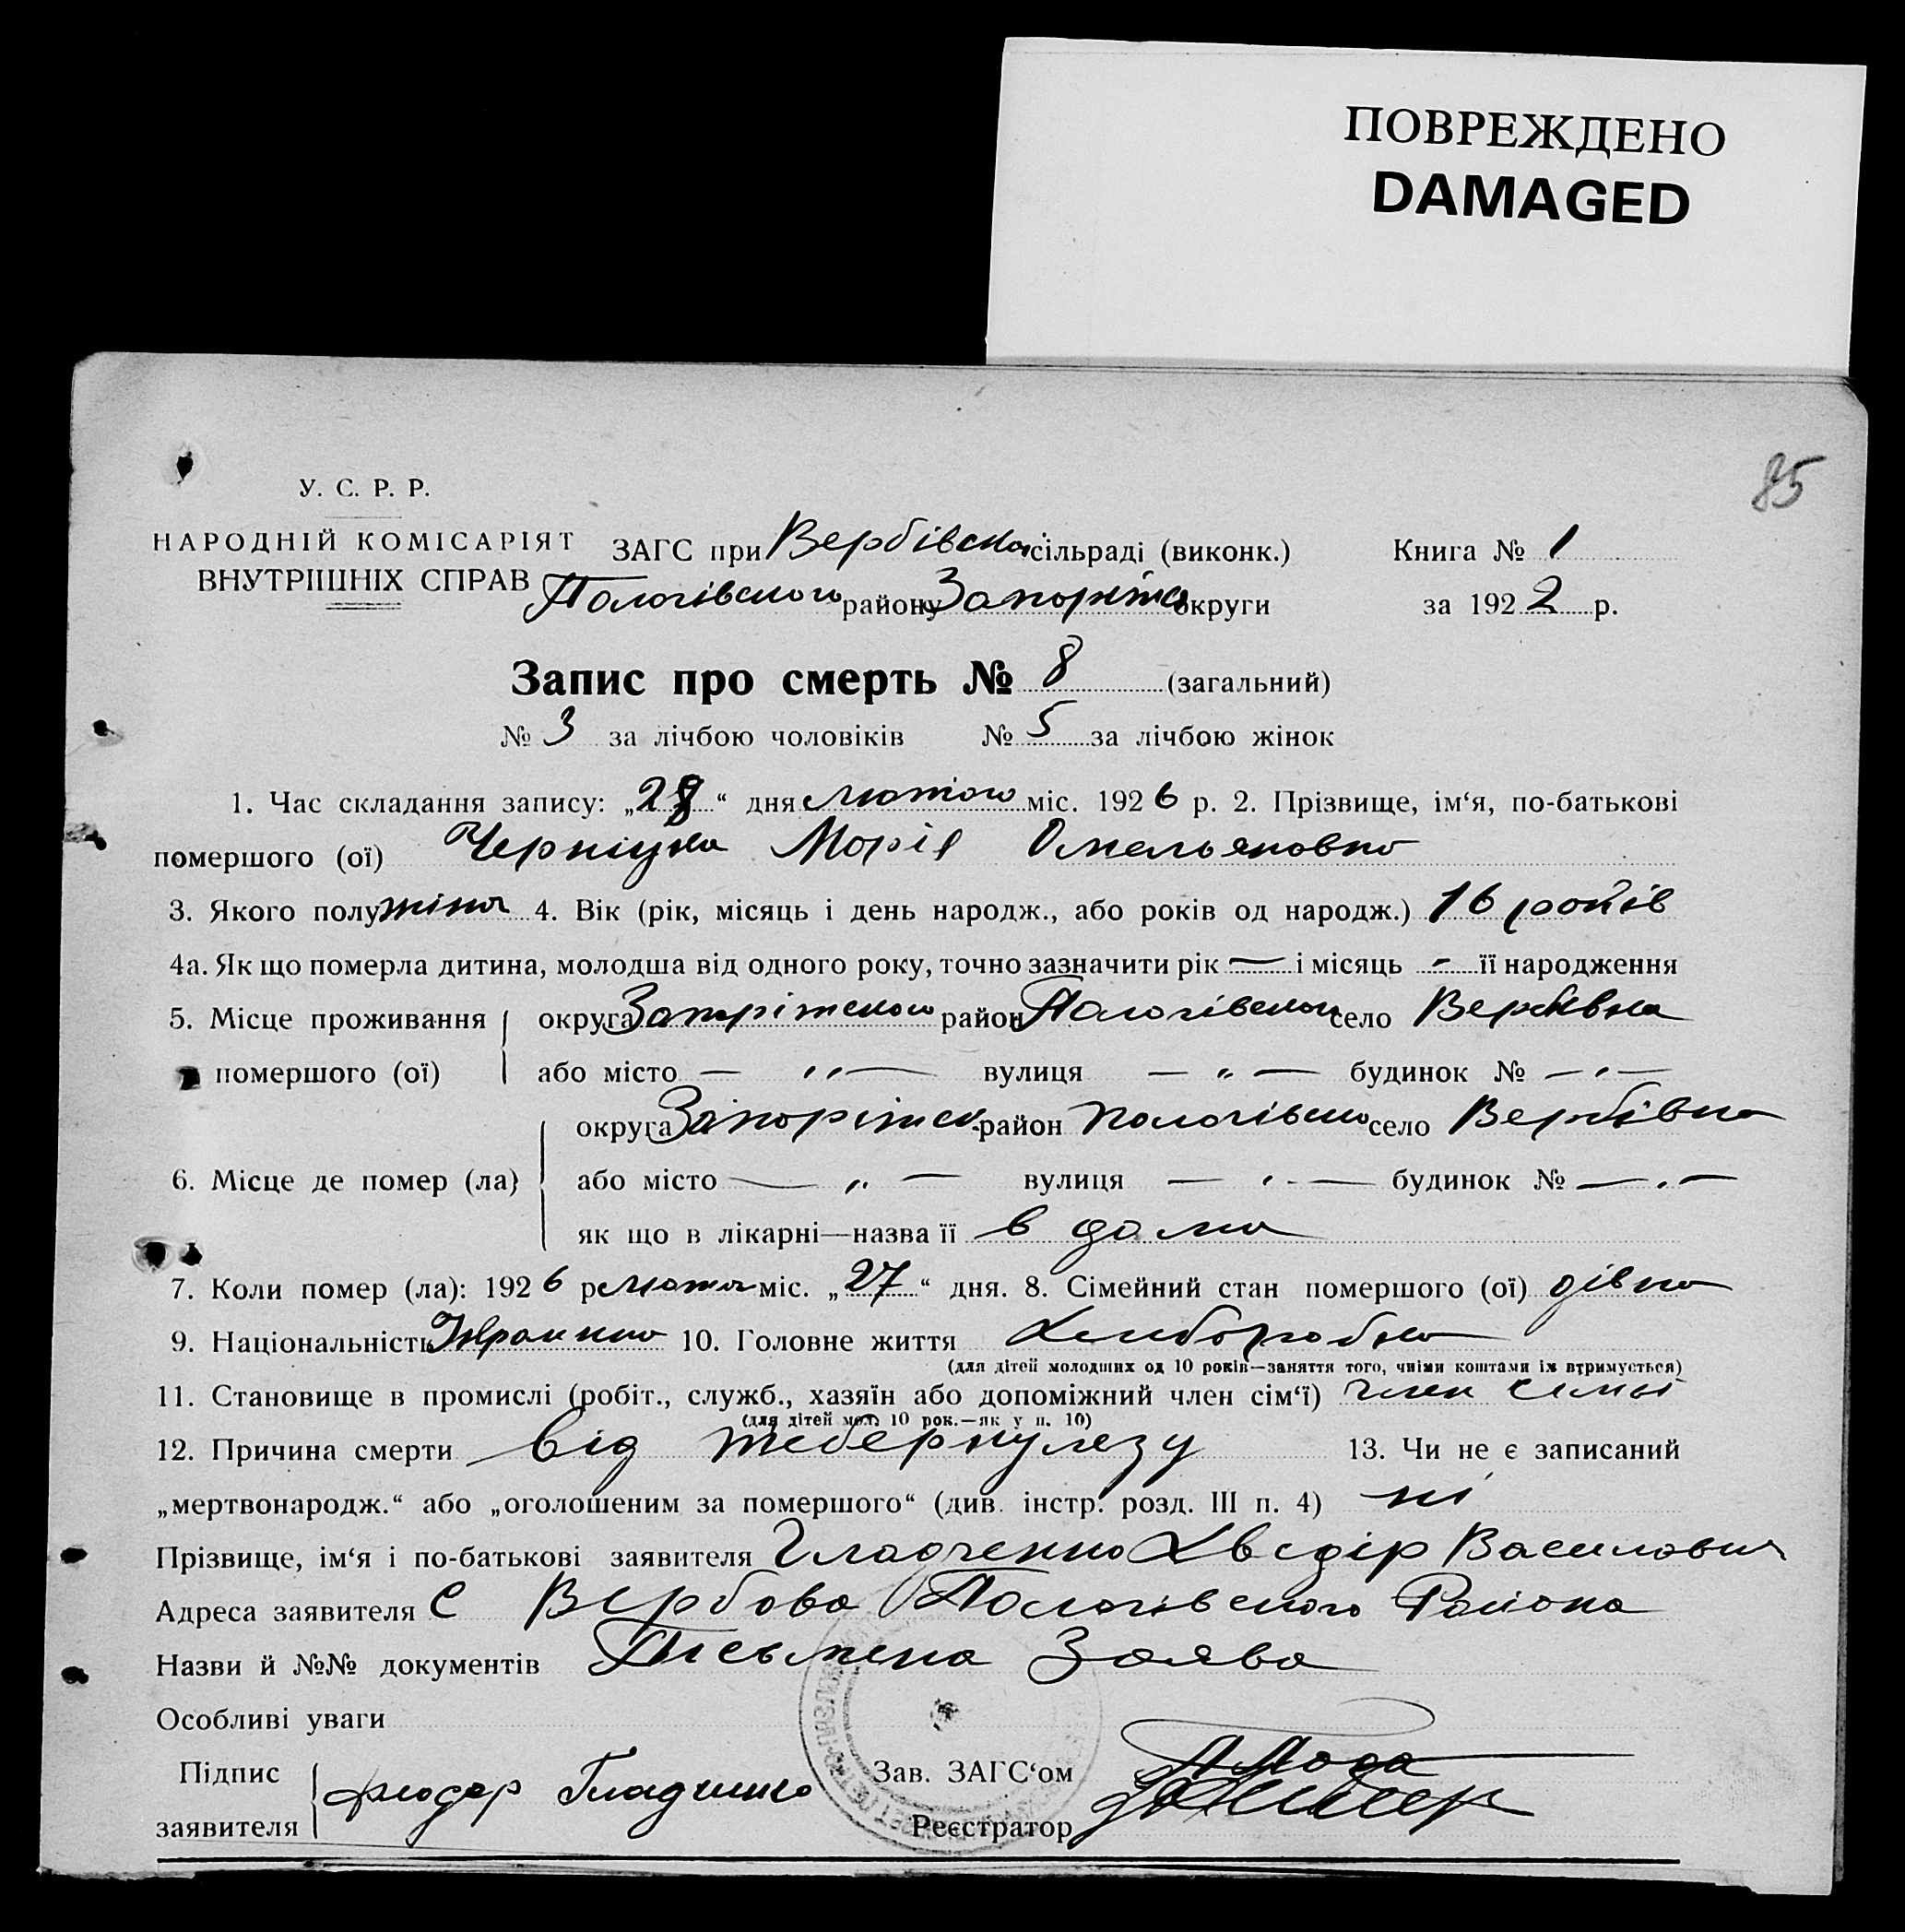 ПОВРЕЖДЕНО
DAMAGED
85
У. С. Р. Р.
НАРОДНІЙ КОМІСАРІЯТ
ВНУТРІШНІХ СПРАВ
ЗАГС при Вербівска сільраді (виконк.) Книга № 1
Пологівского району Запоріжс округи за 1922 р.
Запис про смерть № 8 (загальний)
№ 3 за лічбою чоловіків № 5 за лічбою жінок
1. Час складання запису: „28“ дня лютого міс. 1926 р. 2. Прізвище, ім‘я, по-батькові
помершого (ої) Марія Омельяновна
3. Якого полу жіноч 4. Вік (рік, місяць і день народж., або років од народж.) 16 років
4а. Як що померла дитина, молодша від одного року, точно зазначити рік — і місяць - її народження
5. Місце проживання помершого (ої)
округа Запоріжского район Пологівского село Вербівка
або місто — „ — вулиця — „ — будинок № — „ —
6. Місце де помер (ла)
округа Запоріжск. район Пологівско село Вербівка
або місто — „ — вулиця — „ — будинок № — „ —
як що в лікарні—назва її в дома
7. Коли помер (ла): 1926 р лютог міс. „27“ дня. 8. Сімейний стан помершого (ої) дівка
9. Національність Украинка 10. Головне життя Хлиборобка
(для дітей молодших од 10 років—заняття того, чиїми коштами їх втримується)
11. Становище в промислі (робіт., служб., хазяїн або допоміжний член сім‘ї) член симьі
(для дітей мол. 10 рок.—як у п. 10)
12. Причина смерти від теберкулезу 13. Чи не є записаний
„мертвонародж.“ або „оголошеним за помершого“ (див. інстр. розд. III п. 4) ні
Прізвище, ім‘я і по-батькові заявителя Гладченко Хведір Василович
Адреса заявителя с Вербова Пологівского Района
Назви й №№ документів Письмена Заява
Особливі уваги
Підпис заявителя Федор Гладченко
Зав. ЗАГС‘ом
Реєстратор